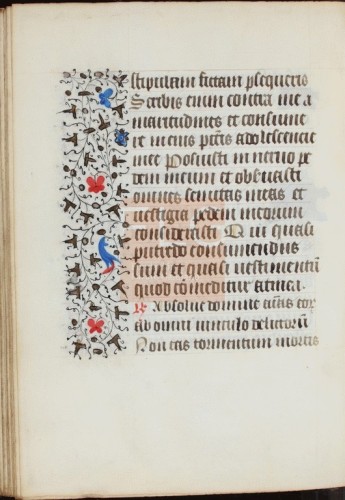 stipulam siccam p̄sequeris
Scribis enim contra me a
maritudines et consume
re me vis pctīs adolescencie
mee Posuisti in neruo pe
dem meum et obseruasti
omnes semitas meas et
uestigia pedum meorum
considerasti Qui quasi
putredo consumendus
sum et quasi uestimentū
quod comeditur a tinea
Absolue domine aīas eoꝝ
ab omni uinculo delictorū
Non eas tormentum mortis